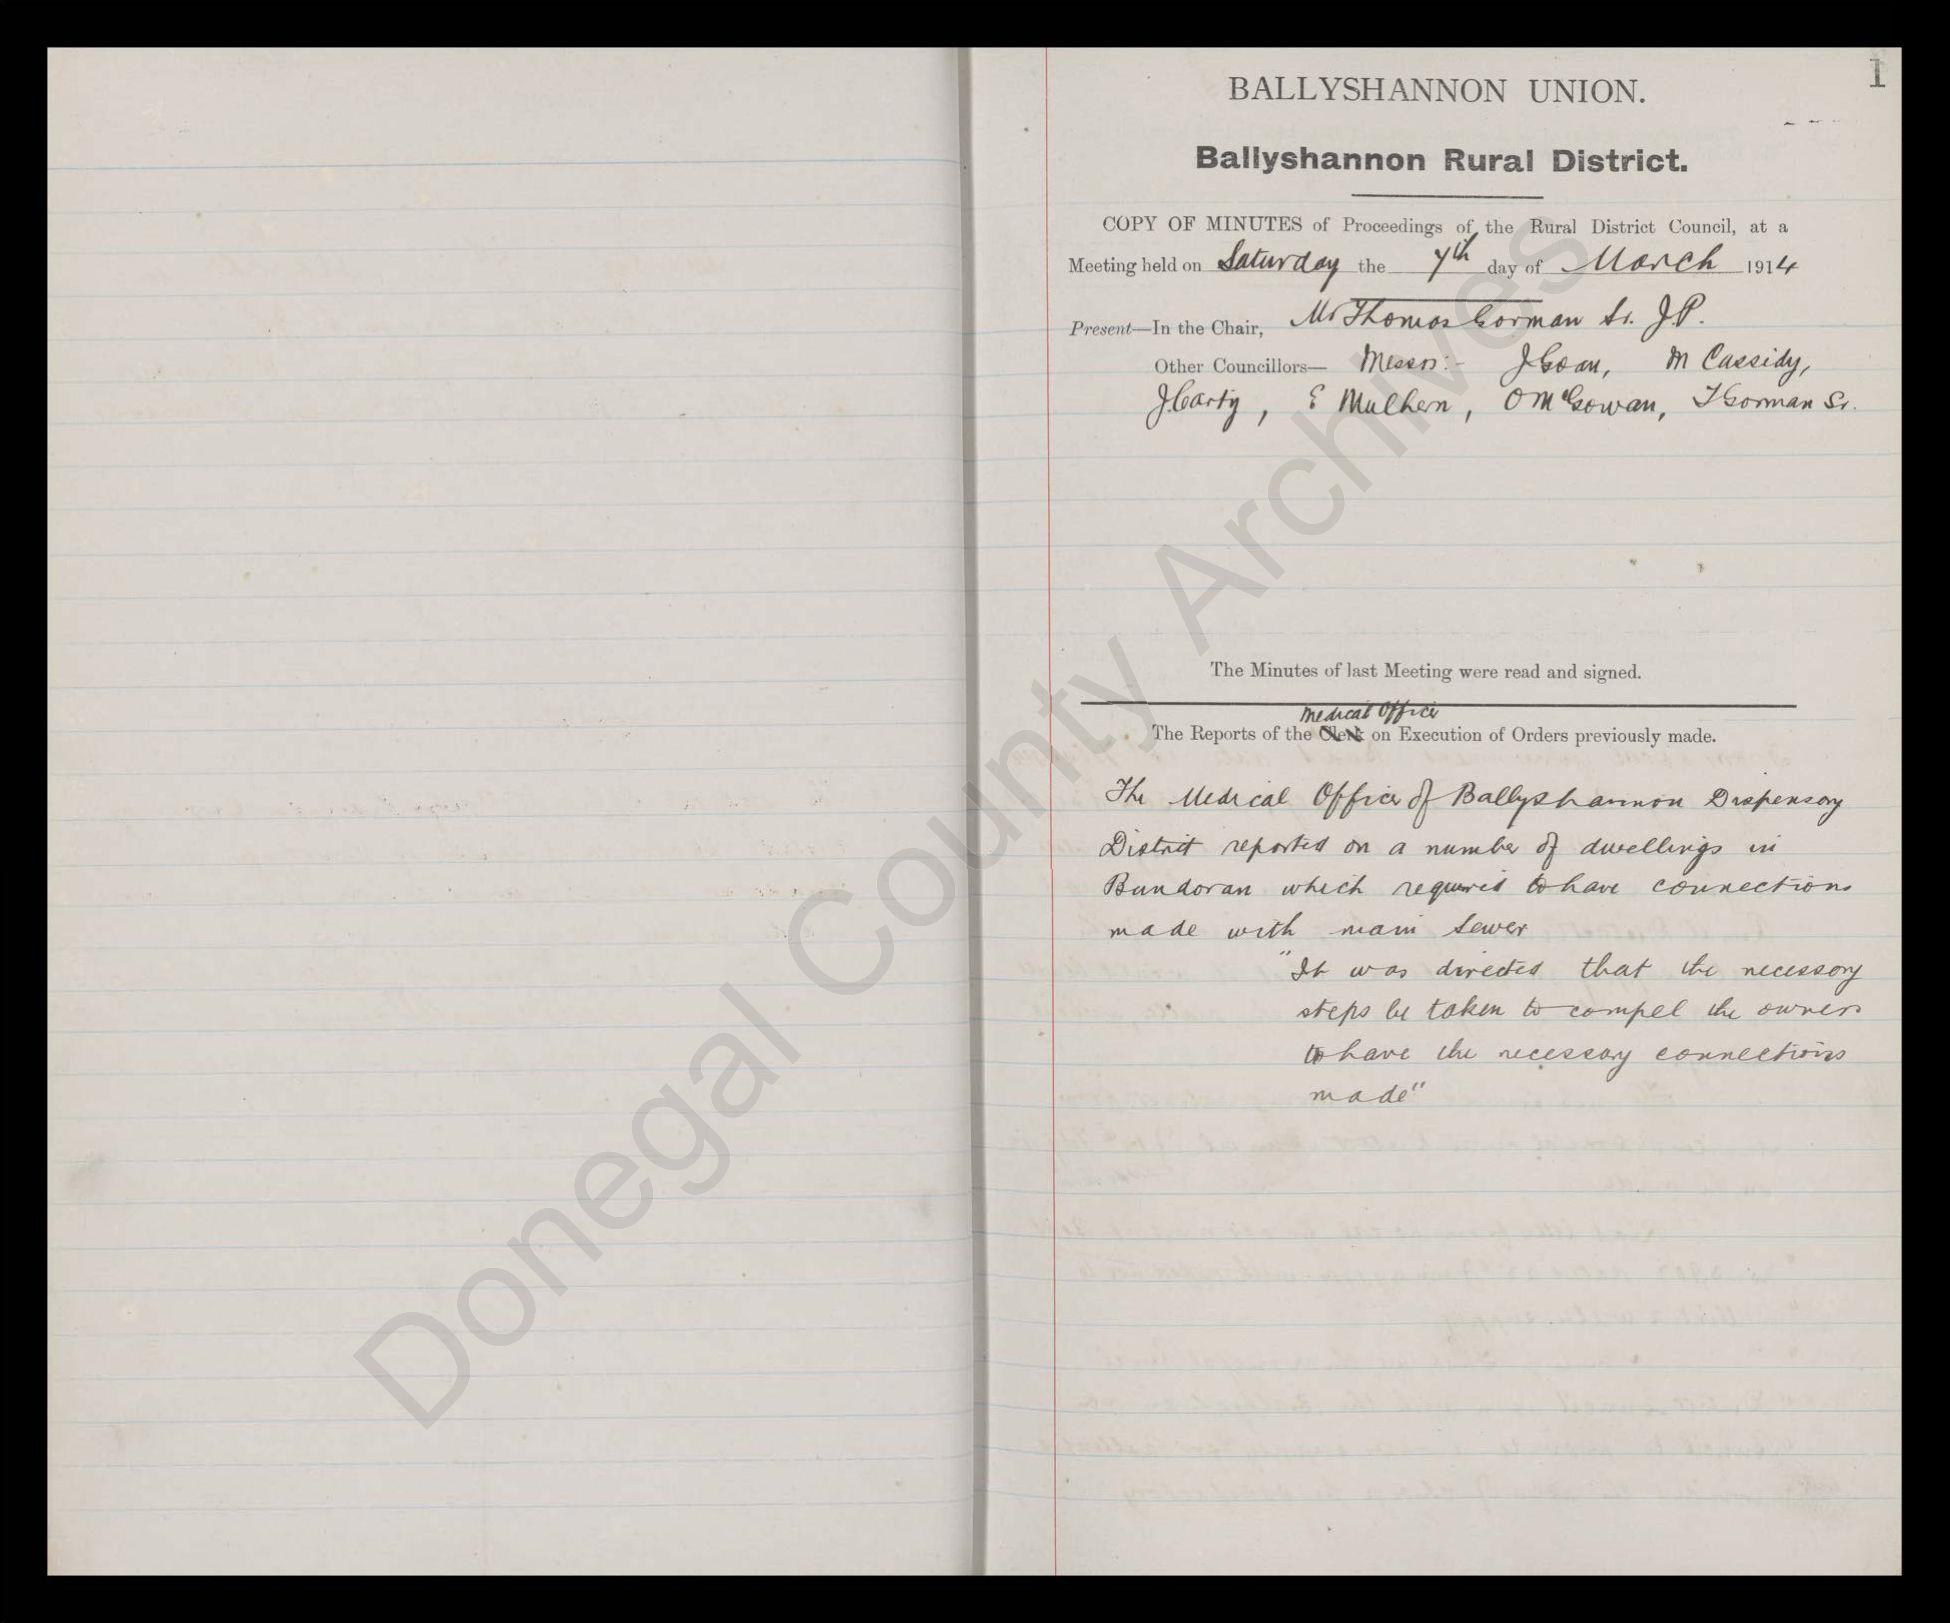 1
BALLYSHANNON UNION.
Ballyshannon Rural District.
COPY OF MINUTES of Proceedings of the Rural District Council, at a
Meeting held on Saturday the 7th day of March 1914
Present—In the Chair, Mr Thomas Gorman Sr. J.P.
Other Councillors— Messrs:- J Goan, M Cassidy,
J Carty, E Mulhern, O McGowan, T Gorman Sr.
The Minutes of last Meeting were read and signed.
Medical Officer
The Reports of the Clerk on Execution of Orders previously made.
The Medical Officer of Ballyshannon Dispensary
District reported on a number of dwellings in
Bundoran which required to have connections
made with main sewer
"It was directed that the necessary
steps be taken to compel the owners
to have the necessary connections
made"
Donegal County Archives